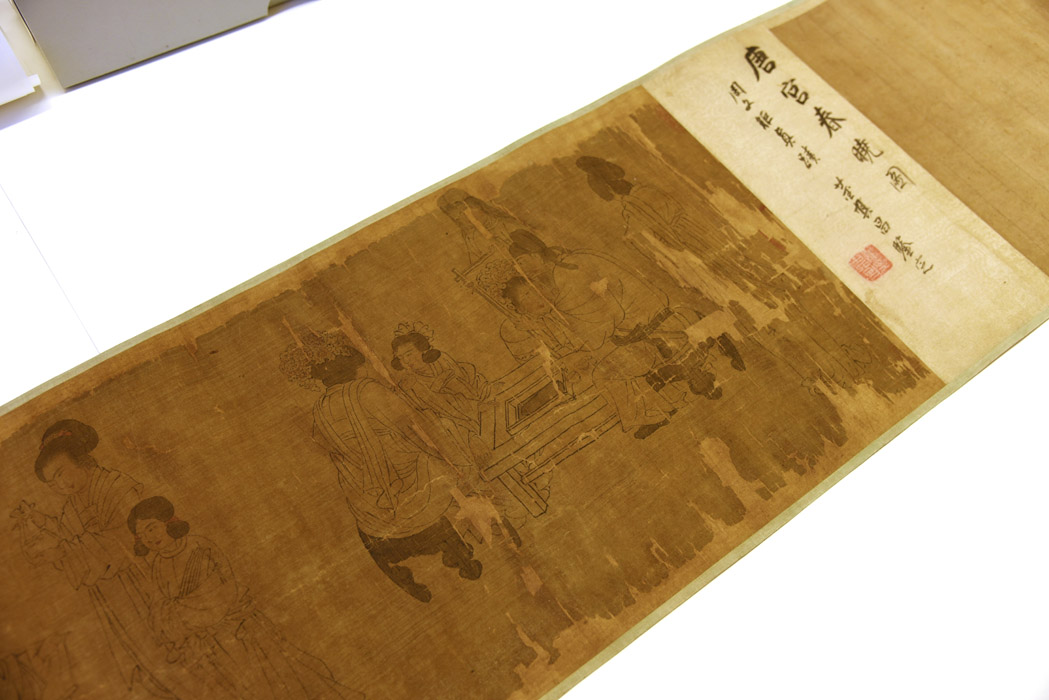 唐宫春曉图
周文矩真蹟 董其昌鑒定